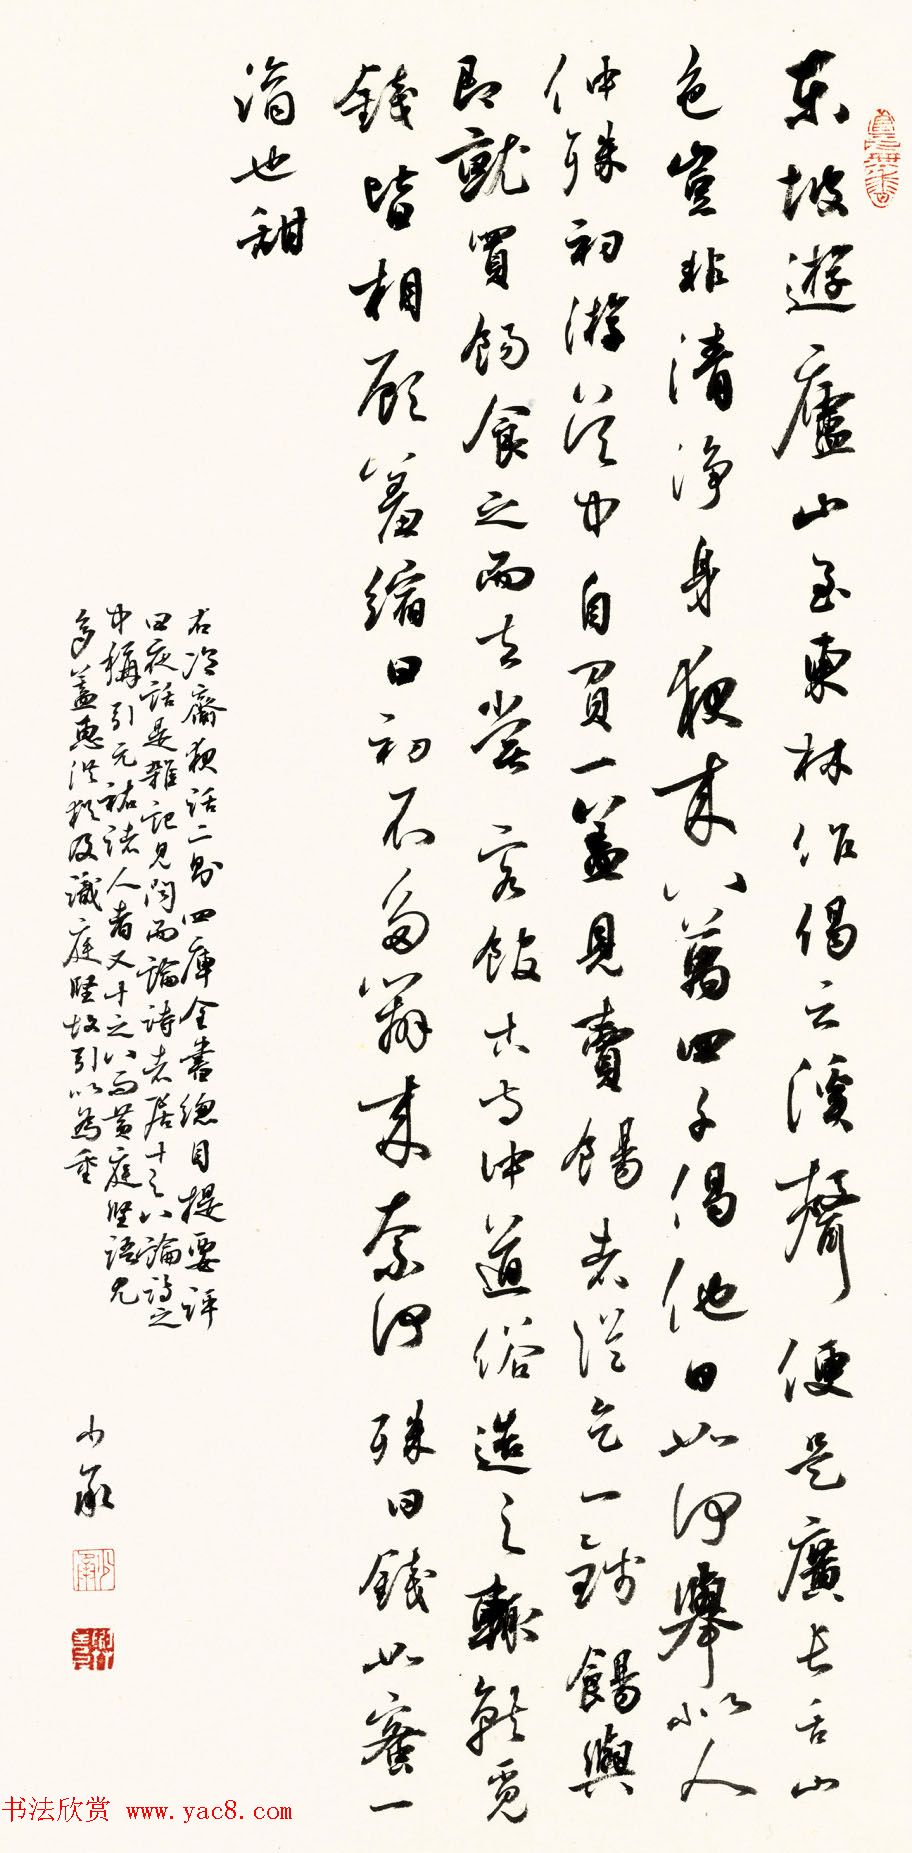 東坡遊廬山至東林作偈云溪聲便是廣長舌山
色豈非清淨身夜來八萬四千偈他日如何舉似人
仲殊初游吳中自買一蓋見賣餳者從乞一錢餳與
即就買餳食之而去嘗客館古寺中道俗造之輒就覓
錢皆相顧羞縮曰初不多辦來奈何殊曰錢如蜜一
滴也甜
右冷齋夜話二則四庫全書總目提要評
曰夜話是雜記見聞而論詩者居十之八論詩之
中稱引元祐諸人者又十之八而黃庭堅語尤
多蓋惠洪猶及識庭堅故引以為重
少承
书法欣赏 www.yac8.com